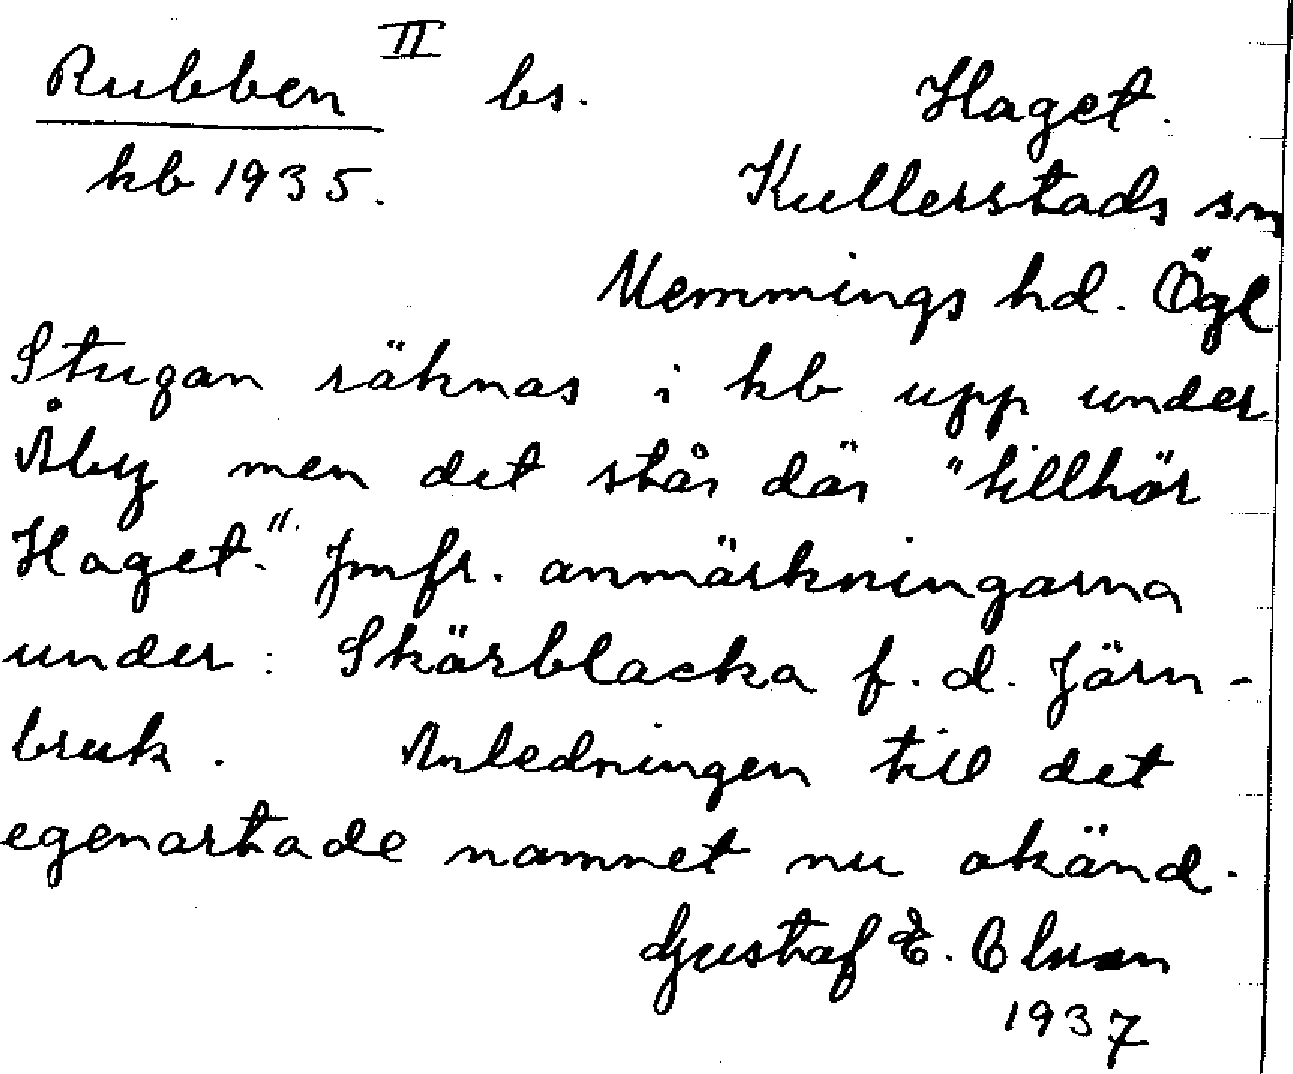 Rubben II bs. Haget.
kb 1935. Kullerstads sn
Memmings hd. Ögl
Stugan räknas i kb upp under
Åby men det står där "tillhör
Haget." Jmfr. anmärkningarna
under: Skärblacka f.d. Järn-
bruk. Anledningen till det
egenartade namnet nu okänd.
Gustaf E.
1937